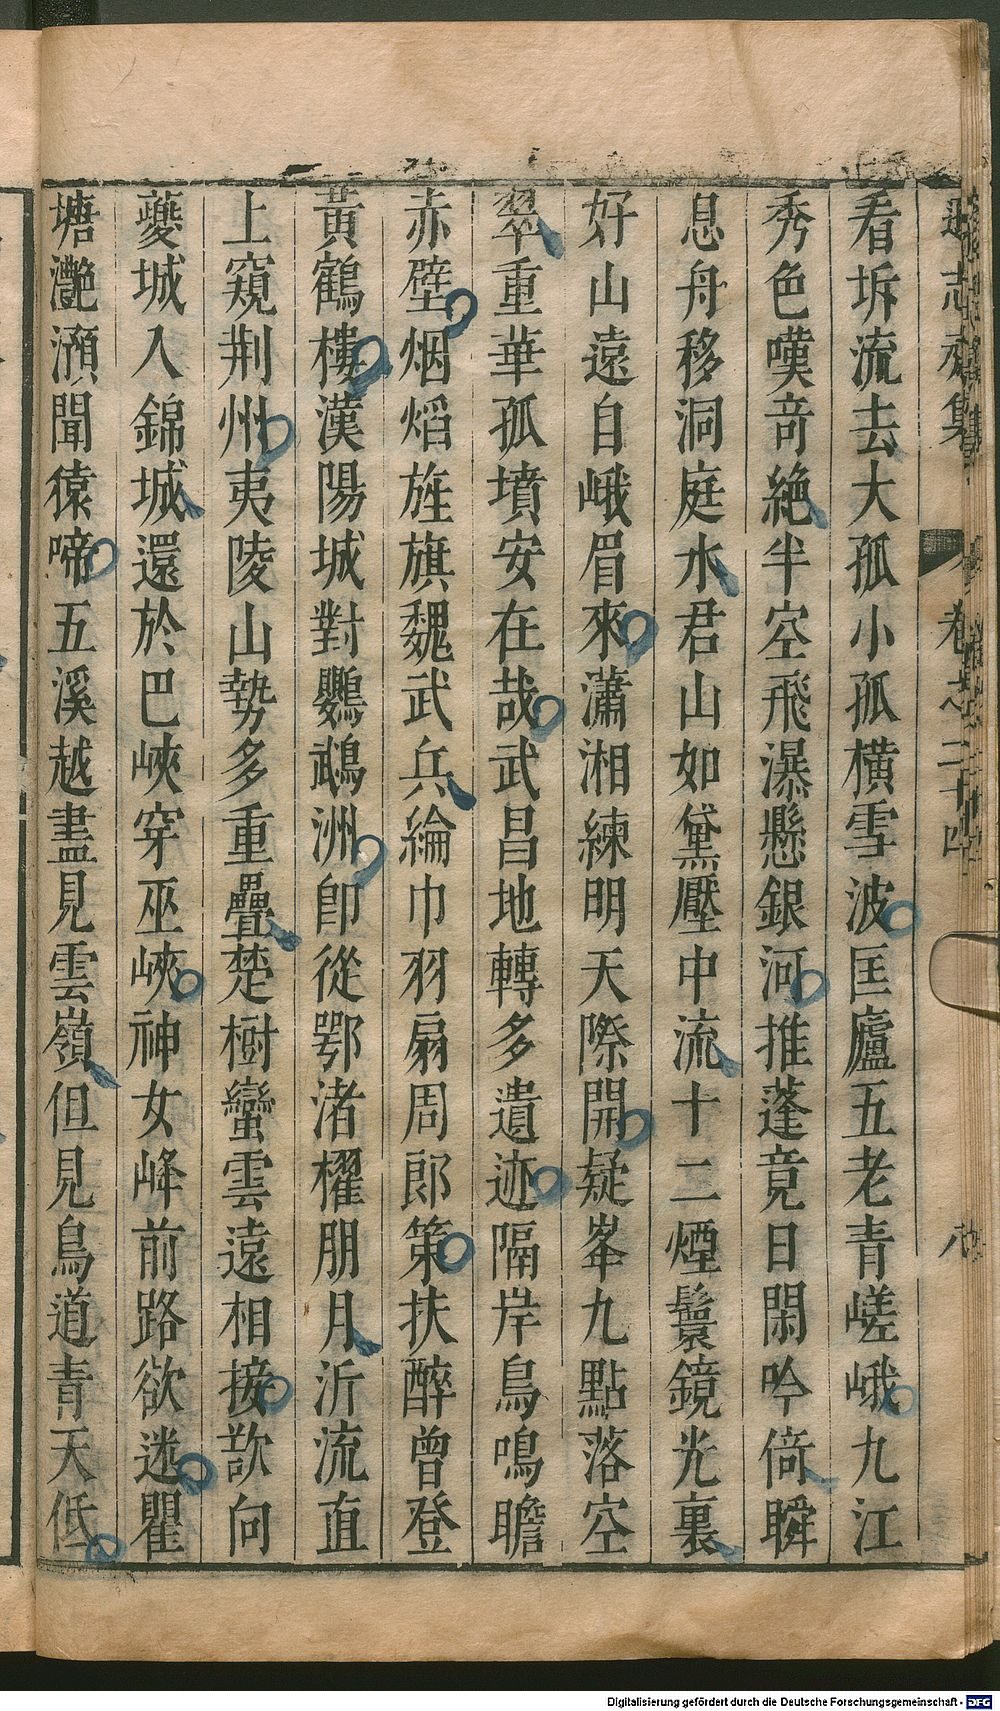 遜志齋集 卷之二十四 八
看坼流去大孤小孤橫雪波匡廬五老青嵯峨九江
秀色嘆竒絶半空飛瀑懸銀河推蓬竟日閑吟倚瞬
息舟移洞庭水君山如黛壓中流十二煙鬟鏡光裏
好山遠自峨眉來瀟湘練明天際開疑峯九點落空
翠重華孤墳安在哉武昌地轉多遺迹隔岸鳥鳴瞻
赤壁烟熖旌旗魏武兵綸巾羽扇周郎策扶醉曾登
黃鶴樓漢陽城對鸚鵡洲卽從鄂渚櫂朋月泝流直
上窺荆州夷陵山勢多重疊楚樹蠻雲遠相接歘向
夔城入錦城還於巴峽穿巫峽神女峰前路欲迷瞿
塘灔澦聞猿啼五溪越盡見雲嶺但見鳥道青天低
Digitalisierung gefördert durch die Deutsche Forschungsgemeinschaft - DFG